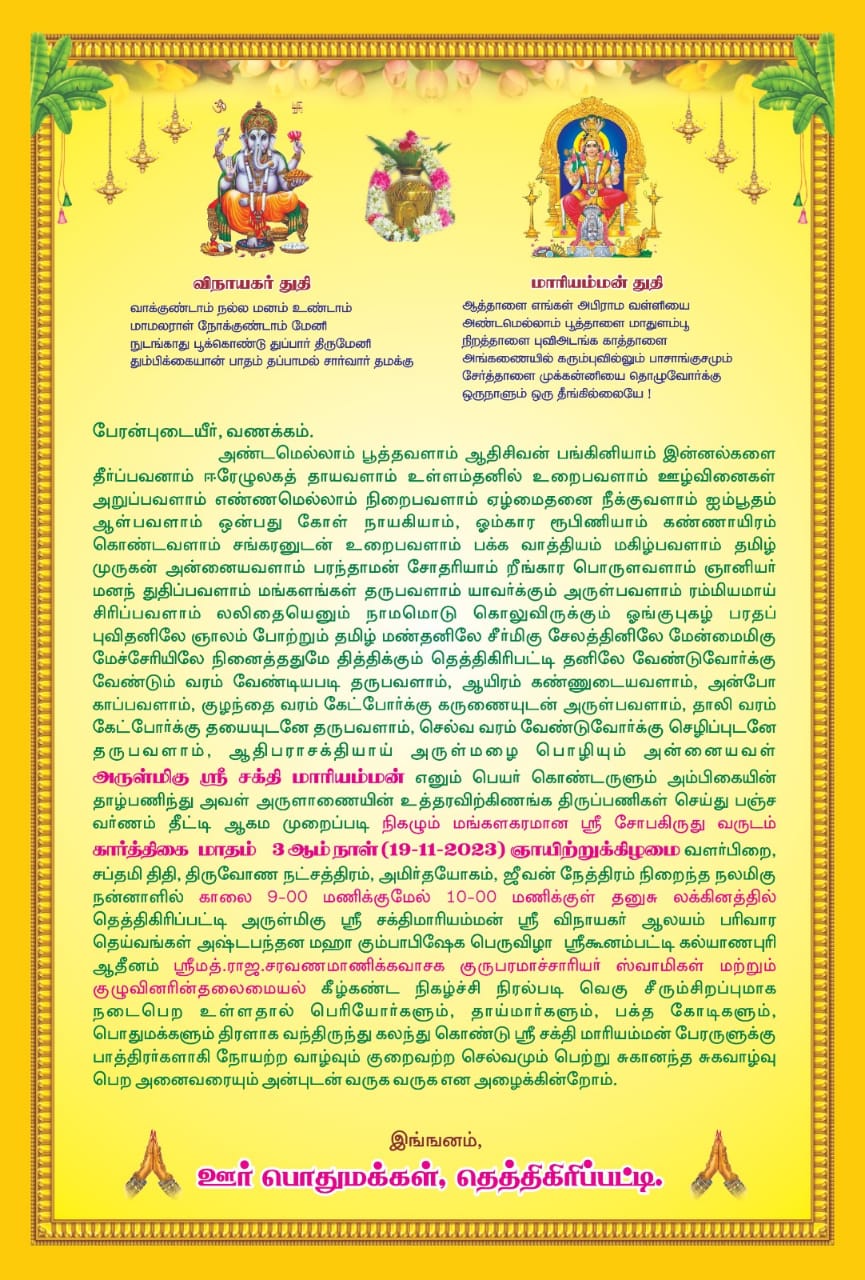 விநாயகர் துதி
வாக்குண்டாம் நல்ல மனம் உண்டாம்
மாமலராள் நோக்குண்டாம் மேனி
நுடங்காது பூக்கொண்டு துப்பார் திருமேனி
தும்பிக்கையான் பாதம் தப்பாமல் சார்வார் தமக்கு
மாரியம்மன் துதி
ஆத்தாளை எங்கள் அபிராம வள்ளியை
அண்டமெல்லாம் பூத்தாளை மாதுளம்பூ
நிறத்தாளை புவிஅடங்க காத்தாளை
அங்கணையில் கரும்புவில்லும் பாசாங்குசமும்
சேர்த்தாளை முக்கன்னியை தொழுவோர்க்கு
ஒருநாளும் ஒரு தீங்கில்லையே !
பேரன்புடையீர், வணக்கம்.
அண்டமெல்லாம் பூத்தவளாம் ஆதிசிவன் பங்கினியாம் இன்னல்களை
தீர்ப்பவனாம் ஈரேழுலகத் தாயவளாம் உள்ளம்தனில் உறைபவளாம் ஊழ்வினைகள்
அறுப்பவளாம் எண்ணமெல்லாம் நிறைபவளாம் ஏழ்மைதனை நீக்குவளாம் ஐம்பூதம்
ஆள்பவளாம் ஒன்பது கோள் நாயகியாம், ஓம்கார ரூபிணியாம் கண்ணாயிரம்
கொண்டவளாம் சங்கரனுடன் உறைபவளாம் பக்க வாத்தியம் மகிழ்பவளாம் தமிழ்
முருகன் அன்னையவளாம் பரந்தாமன் சோதரியாம் றீங்கார பொருளவளாம் ஞானியர்
மனந் துதிப்பவளாம் மங்களங்கள் தருபவளாம் யாவர்க்கும் அருள்பவளாம் ரம்மியமாய்
சிரிப்பவளாம் லலிதையெனும் நாமமொடு கொலுவிருக்கும் ஓங்குபுகழ் பரதப்
புவிதனிலே ஞாலம் போற்றும் தமிழ் மண்தனிலே சீர்மிகு சேலத்தினிலே மேன்மைமிகு
மேச்சேரியிலே நினைத்ததுமே தித்திக்கும் தெத்திகிரிபட்டி தனிலே வேண்டுவோர்க்கு
வேண்டும் வரம் வேண்டியபடி தருபவளாம், ஆயிரம் கண்ணுடையவளாம், அன்போ
காப்பவளாம், குழந்தை வரம் கேட்போர்க்கு கருணையுடன் அருள்பவளாம், தாலி வரம்
கேட்போர்க்கு தயையுடனே தருபவளாம், செல்வ வரம் வேண்டுவோர்க்கு செழிப்புடனே
தருபவளாம், ஆதிபராசக்தியாய் அருள்மழை பொழியும் அன்னையவள்
அருள்மிகு ஸ்ரீ சக்தி மாரியம்மன் எனும் பெயர் கொண்டருளும் அம்பிகையின்
தாழ்பணிந்து அவள் அருளாணையின் உத்தரவிற்கிணங்க திருப்பணிகள் செய்து பஞ்ச
வர்ணம் தீட்டி ஆகம முறைப்படி நிகழும் மங்களகரமான ஸ்ரீ சோபகிருது வருடம்
கார்த்திகை மாதம் 3 ஆம் நாள் (19-11-2023) ஞாயிற்றுக்கிழமை வளர்பிறை,
சப்தமி திதி, திருவோண நட்சத்திரம், அமிர்தயோகம், ஜீவன் நேத்திரம் நிறைந்த நலமிகு
நன்னாளில் காலை 9-00 மணிக்குமேல் 10-00 மணிக்குள் தனுசு லக்கினத்தில்
தெத்திகிரிப்பட்டி அருள்மிகு ஸ்ரீ சக்திமாரியம்மன் ஸ்ரீ விநாயகர் ஆலயம் பரிவார
தெய்வங்கள் அஷ்டபந்தன மஹா கும்பாபிஷேக பெருவிழா ஸ்ரீகூனம்பட்டி கல்யாணபுரி
ஆதீனம் ஸ்ரீமத்.ராஜ.சரவணமாணிக்கவாசக குருபரமாச்சாரியர் ஸ்வாமிகள் மற்றும்
குழுவினரின்தலைமையல் கீழ்கண்ட நிகழ்ச்சி நிரல்படி வெகு சீரும்சிறப்புமாக
நடைபெற உள்ளதால் பெரியோர்களும், தாய்மார்களும், பக்த கோடிகளும்,
பொதுமக்களும் திரளாக வந்திருந்து கலந்து கொண்டு ஸ்ரீ சக்தி மாரியம்மன் பேரருளுக்கு
பாத்திரர்களாகி நோயற்ற வாழ்வும் குறைவற்ற செல்வமும் பெற்று சுகானந்த சுகவாழ்வு
பெற அனைவரையும் அன்புடன் வருக வருக என அழைக்கின்றோம்.
இங்ஙனம்,
ஊர் பொதுமக்கள், தெத்திகிரிப்பட்டி.